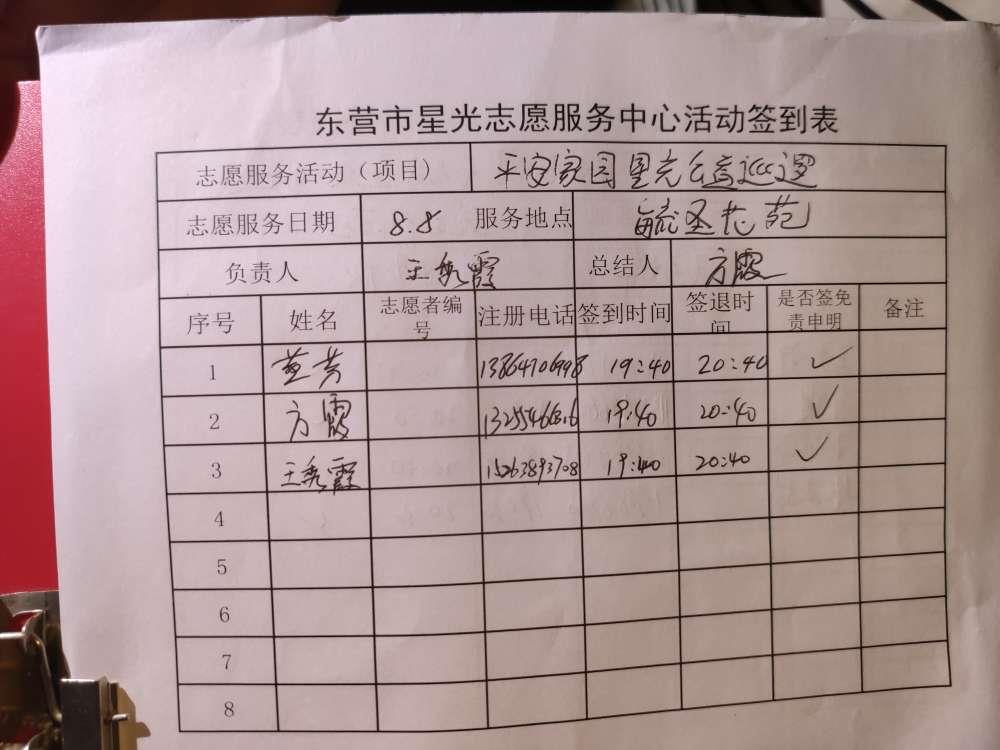 东营市星光志愿服务中心活动签到表
志愿服务活动（项目） 平安家园星光公益巡逻
志愿服务日期 8.8 服务地点 毓圣花苑
负责人 王秀霞 总结人 方霞
序号 姓名 志愿者编号 注册电话 签到时间 签退时间 是否签免责申明 备注
1 董芳 13864706998 19:40 20:40 ✓
2 方霞 19:40 20:40 ✓
3 王秀霞 15263893708 19:40 20:40 ✓
4
5
6
7
8